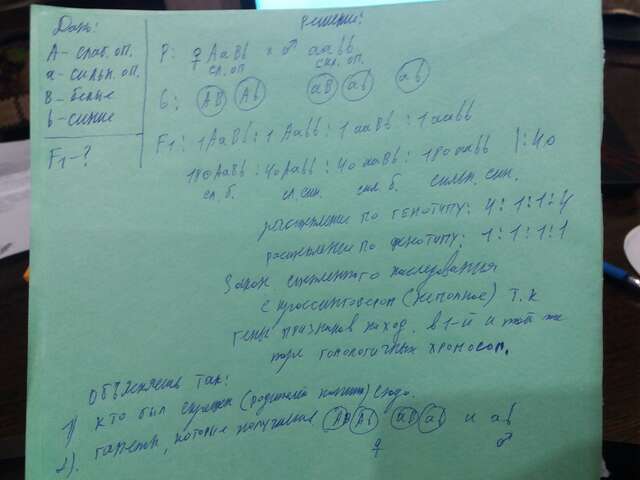 Дано:
A - слаб. оп.
a - сильн. оп.
B - белые
b - синие
F1 - ?
Решение:
P: ♀ AaBb × ♂ aabb
сл. оп. сил. оп.
G: AB Ab aB ab ab
F1: 1AaBb : 1Aabb : 1aaBb : 1aabb
180AaBb : 40Aabb : 40aaBb : 180aabb | : 40
сл. б. сл. син. сил б. сильн. син.
расщепление по генотипу: 4 : 1 : 1 : 4
расщепление по фенотипу: 1 : 1 : 1 : 1
Закон сцепленного наследования
с кроссинговером (неполное) т.к
гены признаков наход. в 1-й и той же
паре гомологичных хромосом.
Объясняешь так:
1) кто был скрещен (родителей пишешь) сюда.
2). гаметы, которые получились AB Ab aB ab и ab
♀ ♂